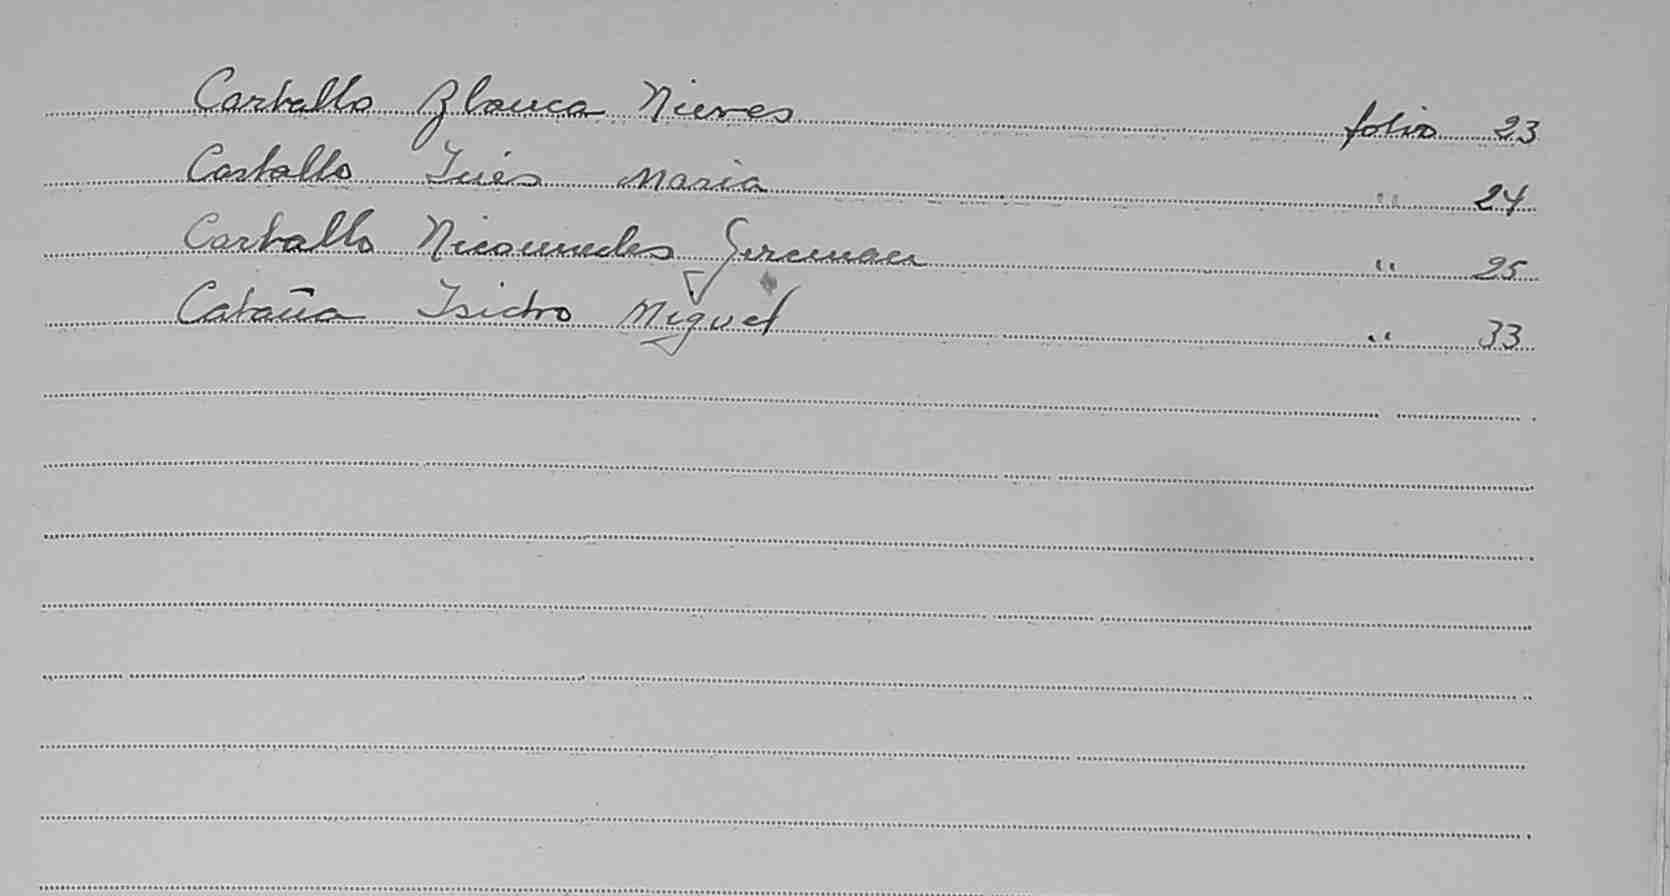 Carballo Blanca Nieves folio 23
Carballo Inés Maria " 24
Carballo Nicomedes German " 25
Cataña Isidro Miguel " 33